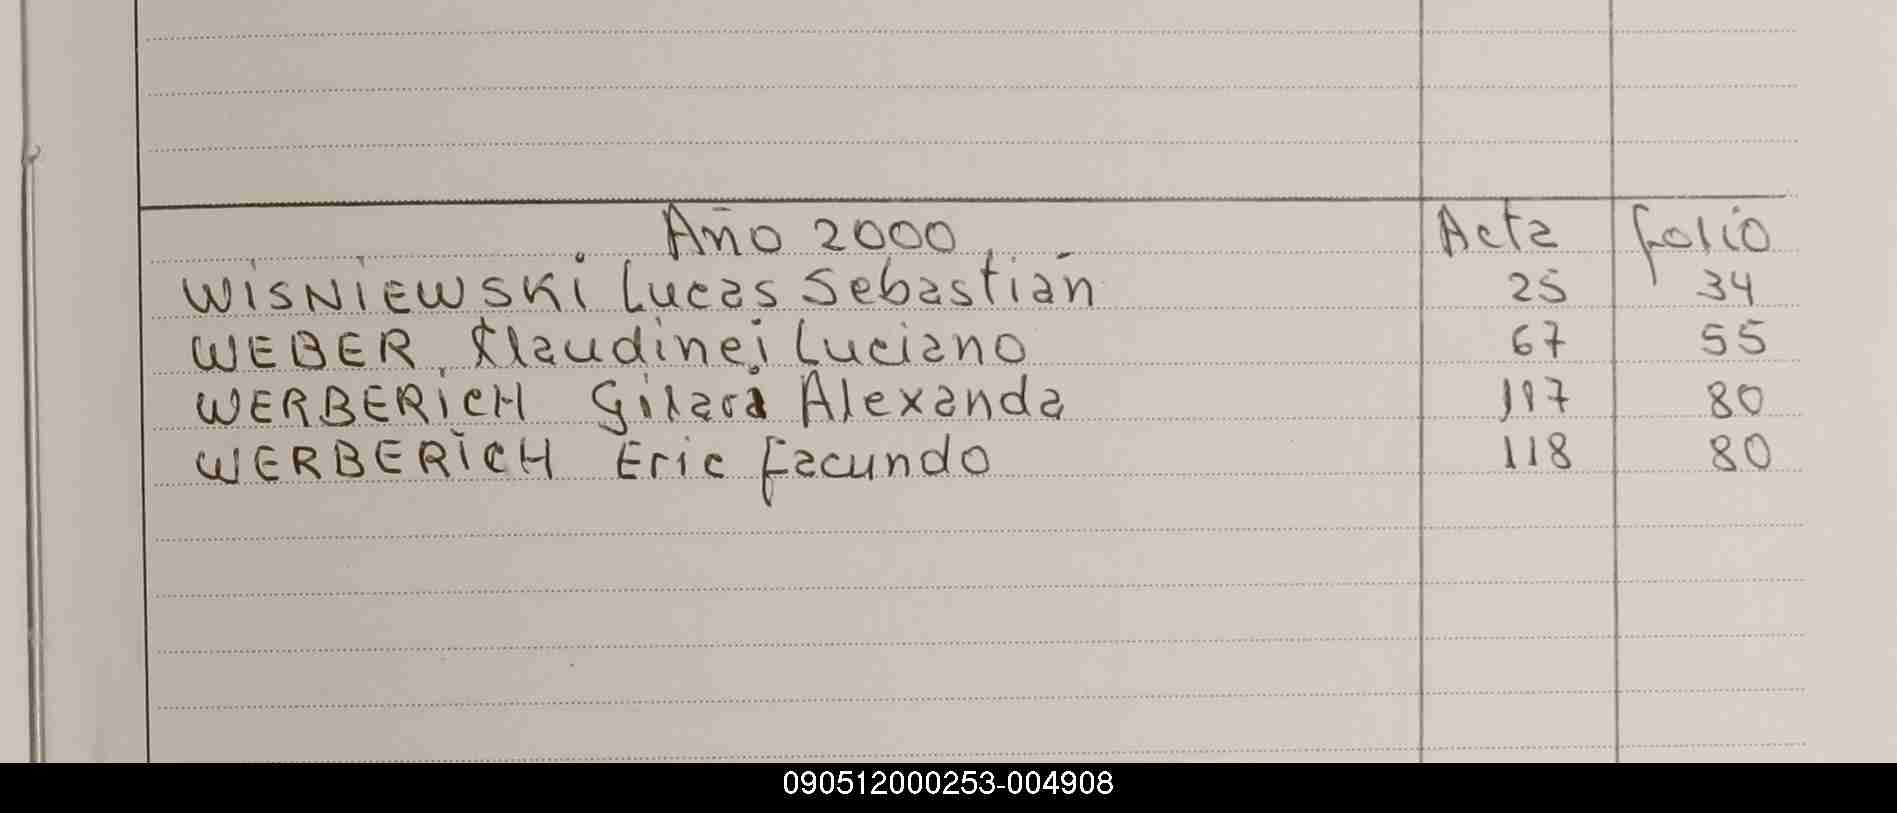 Año 2000 Acta folio
WISNIEWSKI Lucas Sebastián 25 34
WEBER, Klaudinei Luciano 67 55
WERBERICH Alexanda 117 80
WERBERICH Eric Facundo 118 80
090512000253-004908